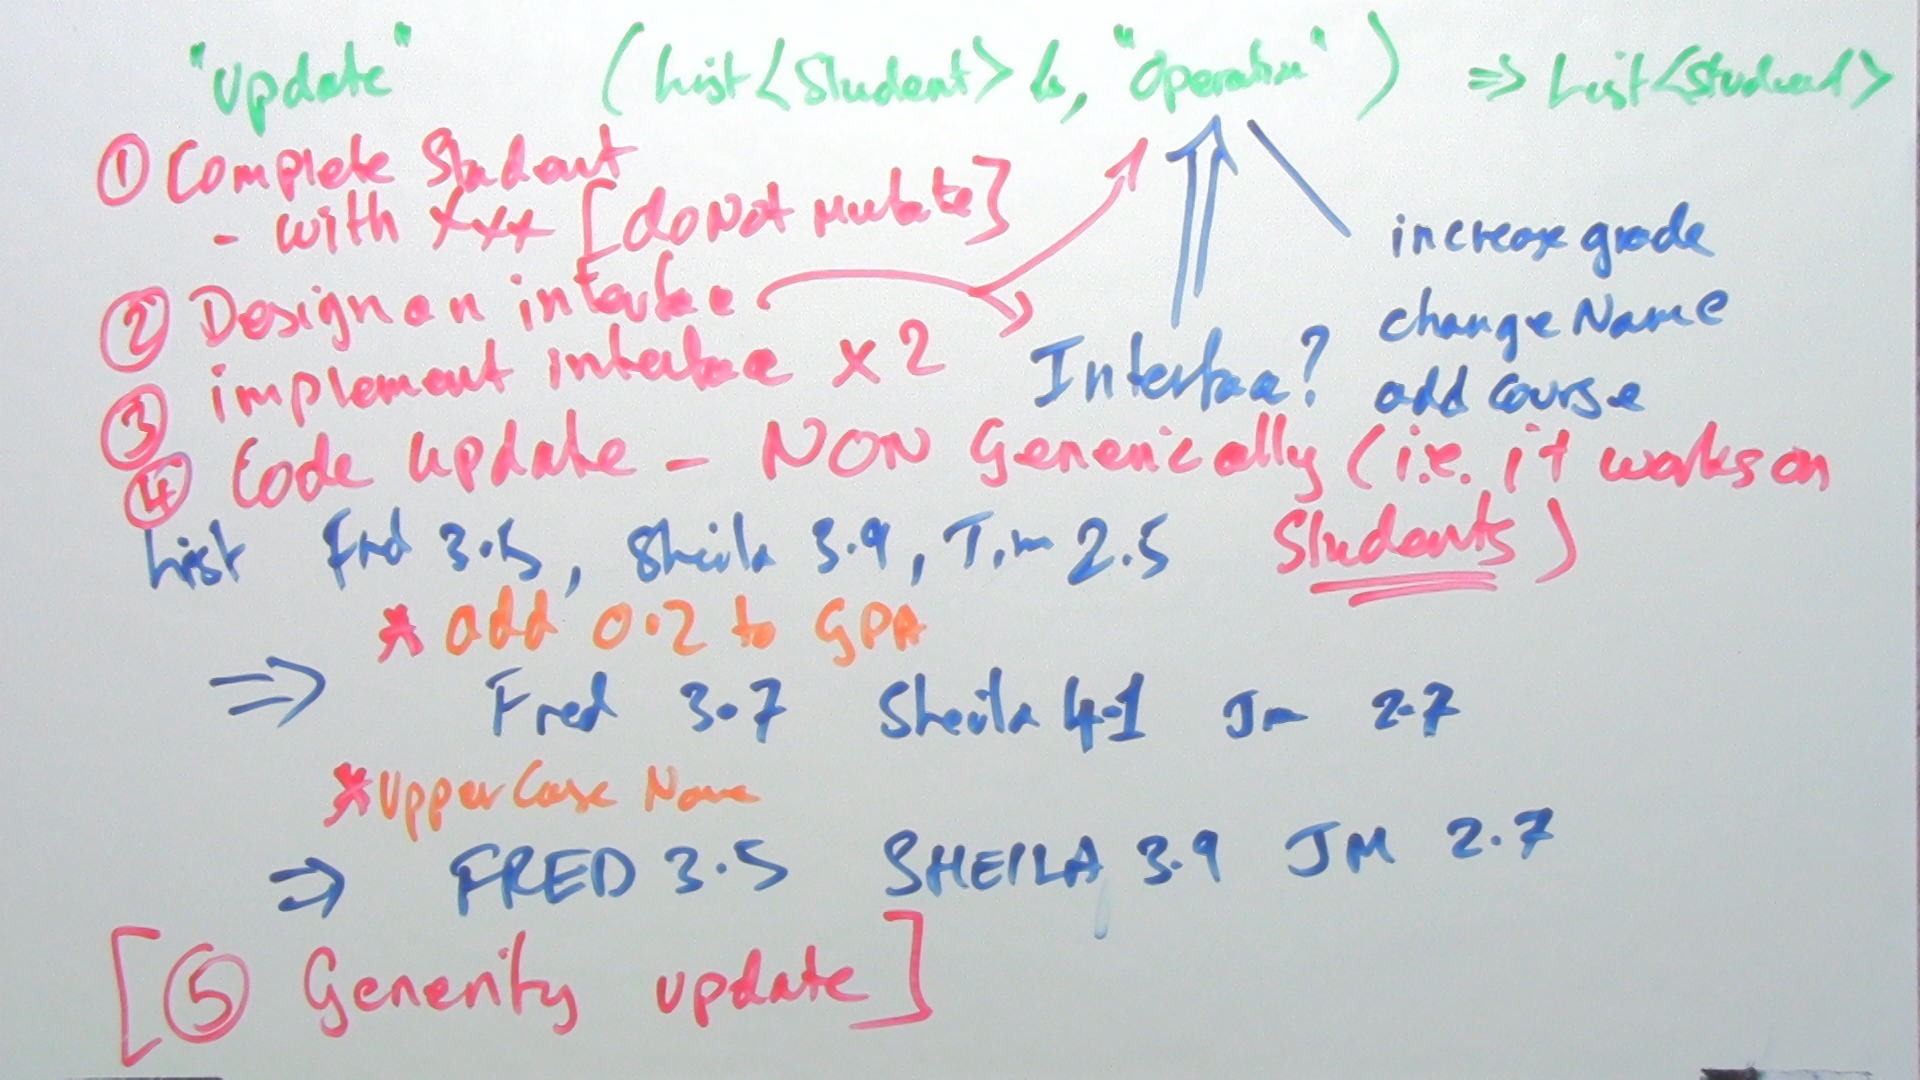 "Update" (List<Student> ls, "Operation") => List<Student>
① Complete Student
- with XXX [do Not Mutate]
② Design an interface
③ implement interface x 2
Interface?
increase grade
change Name
add course
④ Code update - NON Generically (i.e. it works on Students)
List Fred 3.5, Sheila 3.9, Jim 2.5
* add 0.2 to GPA
=> Fred 3.7 Sheila 4.1 Jm 2.7
* Upper Case Name
=> FRED 3.5 SHEILA 3.9 JM 2.7
[⑤ Generify update]